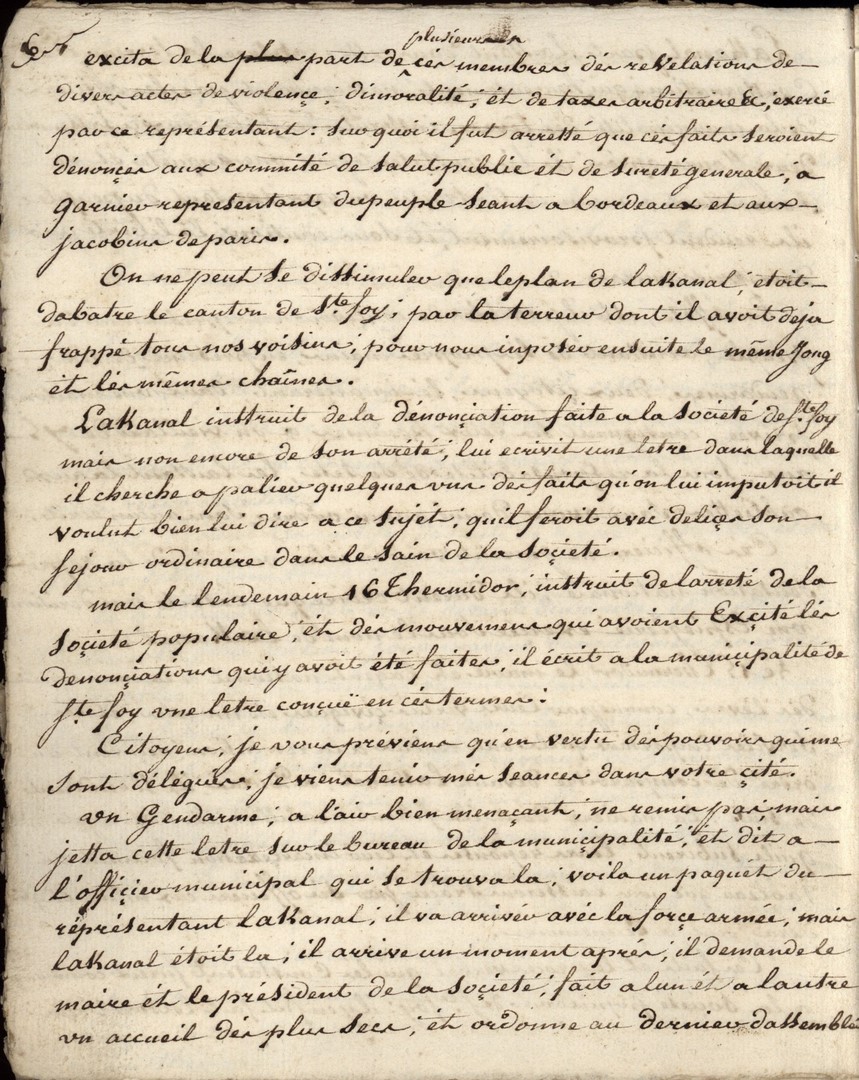 plusieurs de
excita de la plus part de cés membres dés revelations de
divers actes de violençe; dimoralité; ét de taxes arbitraires; exercé
par ce représentant: sur quoi il fut arretté que cés faits seroient
dénonçés aux commité de salut public ét de sureté generale; a
garnier representant du peuple seant a bordeaux et aux
jacobins de paris.
On ne peut se dissimuler que le plan de laKanal; etoit
dabatre le canton de Ste foy; par la terreur dont il avoit deja
frappé tous nos voisins; pour nous inposér ensuite le même Joug
et lés mêmes chaînes.
LaKanal instruit de la dénonçiation faite a la societé de Ste foy
mais non encore de son arrété; lui ecrivit une letre dans laquelle
il cherche a palier quelques uns dés faits qu'on lui imputoit il
voulut bien lui dire a ce sujét; quil feroit avéc deliçes son
sejour ordinaire dans le sain de la soçieté.
mais le lendemain 16 Thermidor; instruit de larreté de la
soçieté populaire; ét dés mouvemens qui avoient Exçité lés
denonçiations qui y avoit été faites; il écrit a la muniçipalité de
Ste foy une letre conçuë en cés termes:
Citoyens; je vous préviens qu'en vertu dés pouvoirs qui me
sont délégués; je viens tenir més seances dans votre çité.
un Gendarme; a l'air bien menaçant; ne remis pas; mais
jetta cette letre sur le bureau de la muniçipalité; et dit a
l'offiçier municipal qui se trouva la; voila un paquét du
réprésentant laKanal; il va arrivér avéc la forçe armée; mais
laKanal étoit la; il arrive un moment aprés; il demande le
maire ét le président de la soçieté; fait a lun ét a lautre
un accueil dés plus secs; ét ordonne au dernier dassemblér